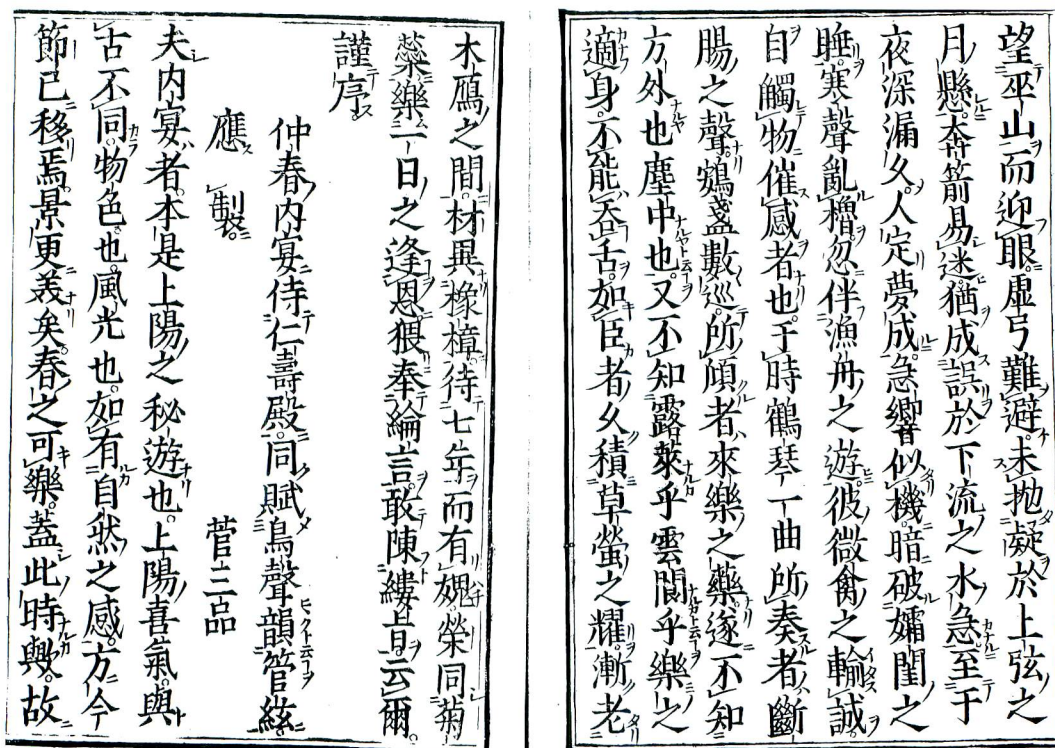 望巫山而迎眼。虚弓難避。未抛凝於上弦之
月懸。奔箭易迷。猶成誤於下流之水急。至于
夜深漏久。人定夢成。急響似機。暗破孀閨之
睡。寒聲亂櫓。忽伴漁舟之遊。彼微禽之輸誠。
自觸物催感者也。于時鶴琴一曲。所奏者斷
腸之聲。鵷盞數巡。所傾者來樂之藥。遂不知
方外也塵中也。又不知露萊乎雲閬乎。樂之
適身。不能吞舌。如臣者。久積草螢之耀。漸老
木鴈之間。材異橡樟。待七年而有媿。榮同菊
蘂。樂一日之逢恩。猥奉綸言。敢陳縷旨。云爾。
謹序。
仲春内宴。侍仁壽殿。同賦鳥聲韻管絃
應 製。 菅三品
夫内宴者。本是上陽之秘遊也。上陽喜氣。與
古不同。物色也。風光也。如有自然之感。方今
節已移焉。景更美矣。春之可樂。蓋此時輿。故